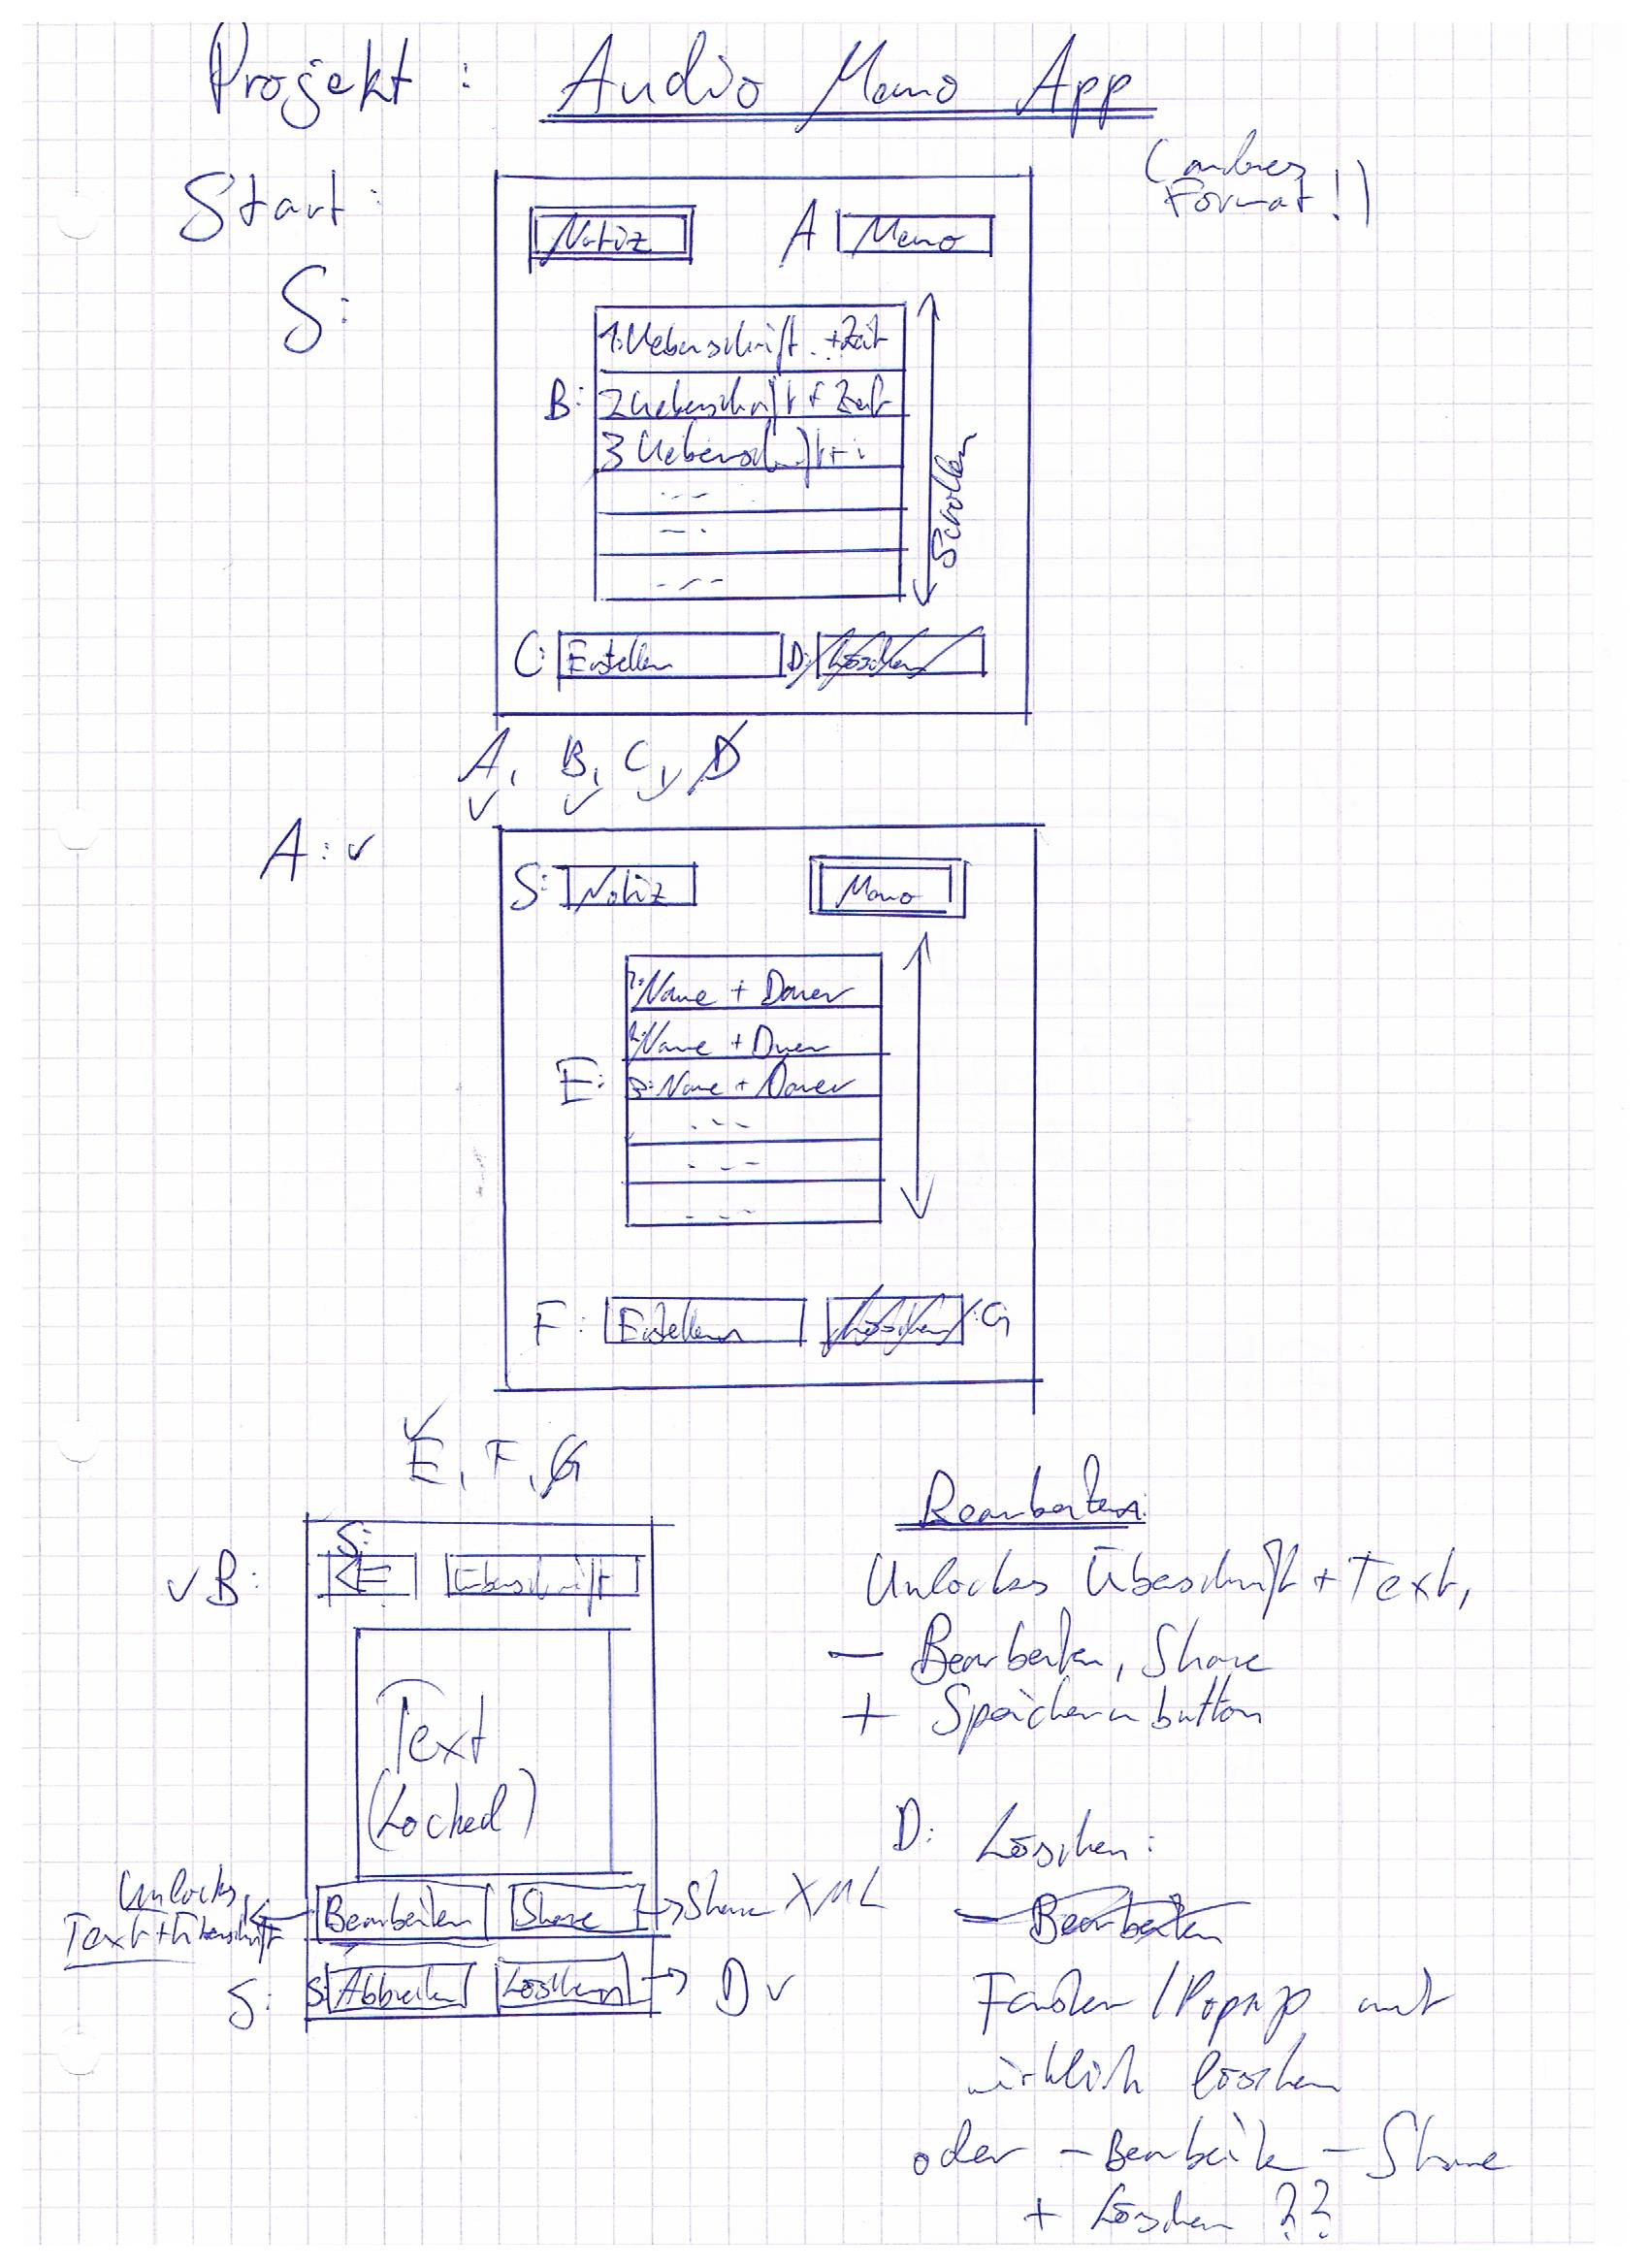 Projekt : Audio Memo App
(andres
Format!)
Start:
S:
Notiz A Memo
1. Ueberschrift +Zeit
B: 2 Ueberschrift + Zeit
3 Ueberschrift + :
Scrollen
C: Erstellen D: Löschen
A, B, C, D
A:
S: Notiz Memo
1: Name + Dauer
2: Name + Duer
E: 3: Name + Dauer
F: Erstellen Löschen :G
E, F, G
B: S:
Überschrift
Text
(Locked)
Unlocks
Text+Überschrift
Bearbeiten Share Share XML
S: S: Abbrechen Löschen D
Bearbeiten:
Unlocks Überschrift + Text,
- Bearbeiten, Share
+ Speichern button
D: Löschen:
- Bearbeiten
Fenster / Popup mit
wirklich löschen
oder - Bearbeite - Share
+ Löschen ??